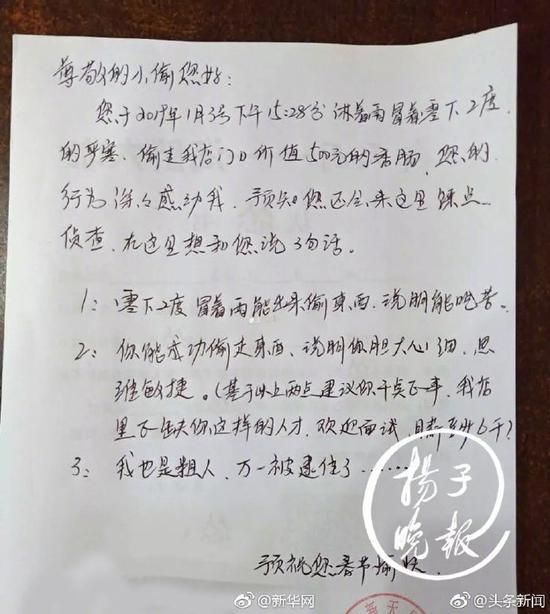 尊敬的小偷您好：
您于2019年1月3号下午15:28分淋着雨冒着零下2度
的严寒、偷走我店门口价值500元的香肠、您的
行为深々感动我、预知您还会来这里踩点
侦查、在这里想和您说3句话。
1：零下2度冒着雨能出来偷東西、说明能吃苦。
2：你能成功偷走東西、说明你胆大心细、思
维敏捷。(基于以上两点建议你干点正事、我店
里正缺你这样的人才、欢迎面试、月薪至少6千?
3：我也是粗人、万一被逮住了……
预祝您春节愉快.
揚子
晚報
@新华网
@头条新闻